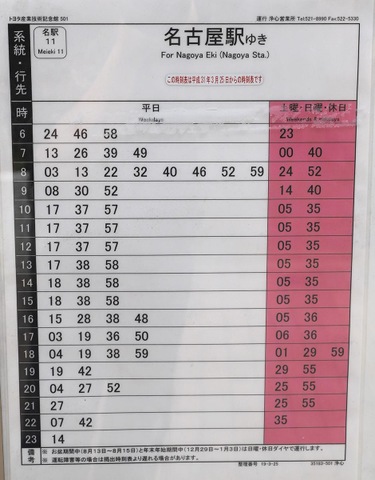 トヨタ産業技術記念館 501
運行 浄心営業所 Tel.521-8990 Fax.522-5330
系統・行先
名駅
11
Meieki 11
名古屋駅ゆき
For Nagoya Eki (Nagoya Sta.)
この時刻表は平成31年3月25日からの時刻表です
時
平日
Weekdays
土曜・日曜・休日
Weekends & Holidays
6 24 46 58 23
7 13 26 39 49 00 40
8 03 13 22 32 40 46 52 59 24 52
9 08 30 52 14 40
10 17 37 57 05 35
11 17 37 57 05 35
12 17 37 57 05 35
13 17 38 58 05 35
14 18 38 58 05 35
15 18 38 58 05 35
16 15 28 38 48 05 36
17 03 19 36 50 06 36
18 04 19 38 59 01 29 59
19 19 42 29 55
20 04 27 52 25 55
21 27 25 55
22 07 42 35
23 14
備考
※ お盆期間中(8月13日～8月15日)と年末年始期間中(12月29日～1月3日)は日曜・休日ダイヤで運行します。
※ 運転障害等の場合は掲出時刻表より遅れる場合があります。
整理番号 19-3-25 35163-501 浄心